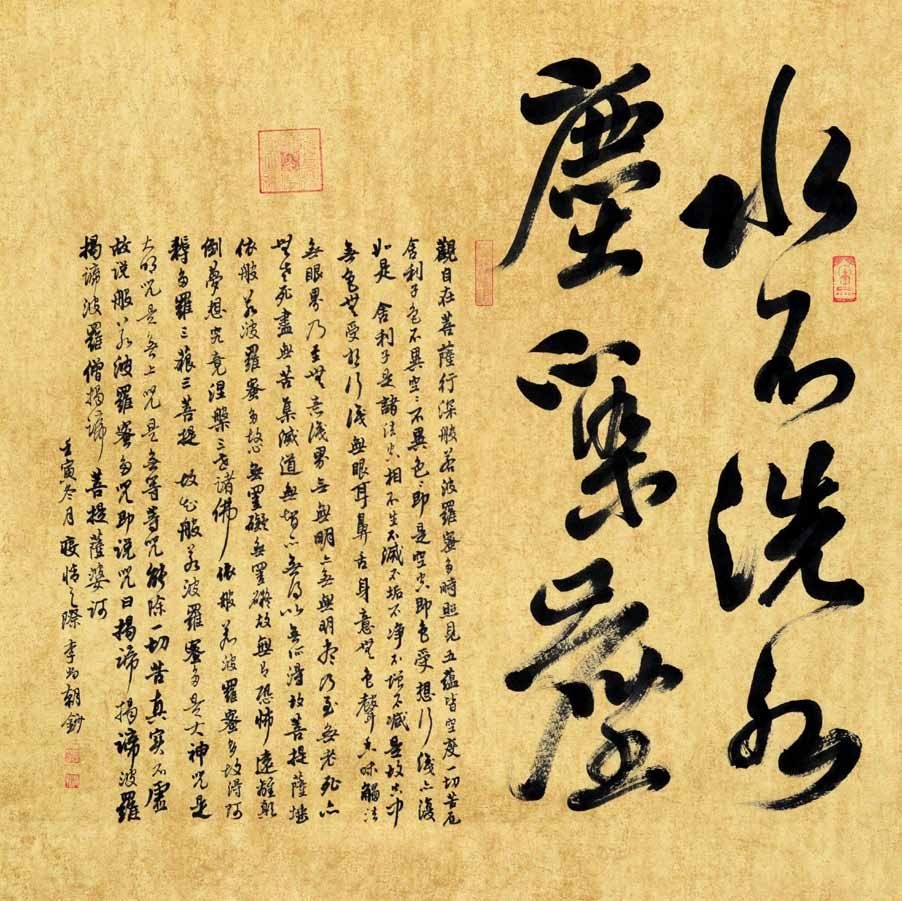 水不洗水
塵不染塵
觀自在菩薩行深般若波羅蜜多時照見五蘊皆空度一切苦厄
舍利子色不異空〻不異色〻即是空空即色受想行識亦復
如是 舍利子是諸法空相不生不滅不垢不净不增不減是故空中
無色無受想行識無眼耳鼻舌身意無色聲香味觸法
無眼界乃至無意識界無無明亦無無明盡乃至無老死亦
無老死盡無苦集滅道無智亦無得以無所得故菩提薩埵
依般若波羅蜜多故心無罣礙無罣礙故無有恐怖遠離顛
倒夢想究竟涅槃三世諸佛 依般若波羅蜜多故得阿
耨多羅三藐三菩提 故知般若波羅蜜多是大神咒是
大明咒是無上咒是無等等咒能除一切苦真實不虛
故說般若波羅蜜多咒即說咒曰揭諦揭諦波羅
揭諦波羅僧揭諦 菩提薩婆訶
壬寅冬月疫情之際李朝鈔